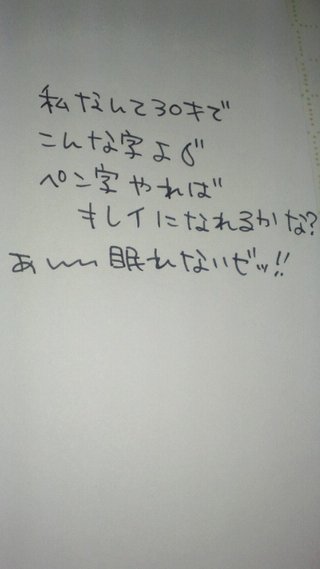 私なんて30までﾞ
こんな字よ(ﾞ
ペン字やれば
キレイになれるかな?
あ〜〜眠れないぜッ!!